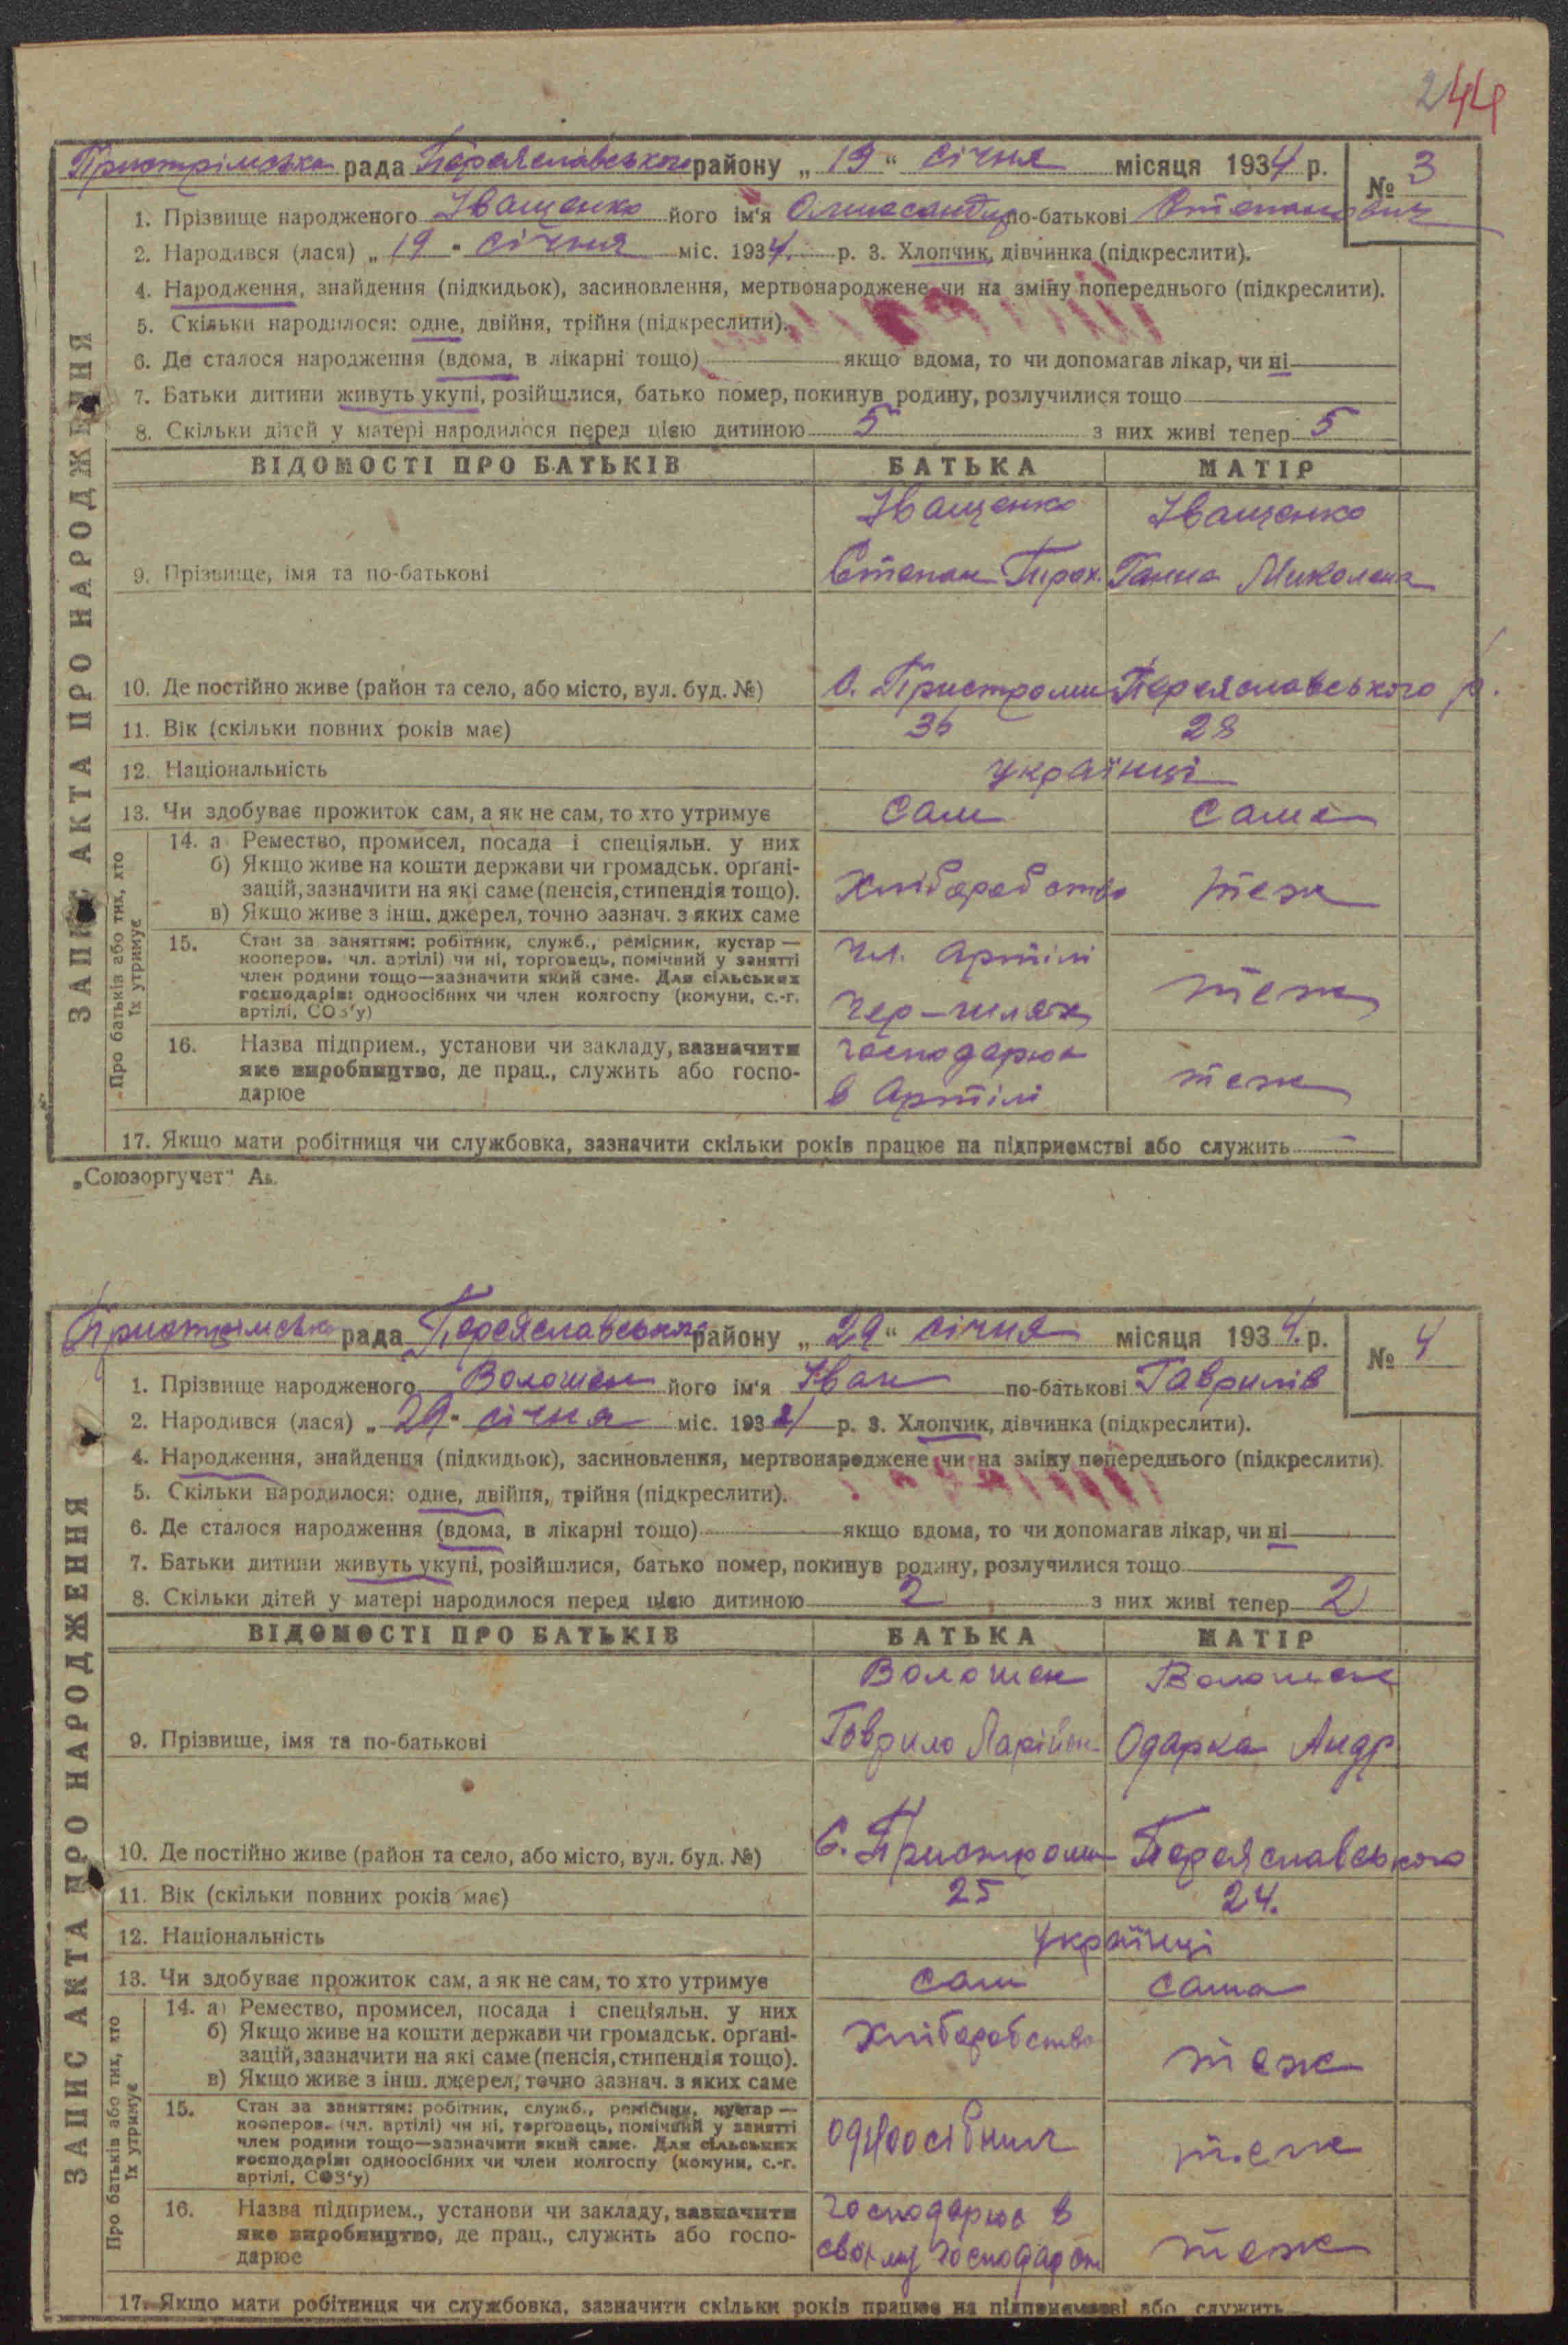 244
Пристрімська рада Переяславського району „ 19 “ січня місяця 1934 р.
№ 3
1. Прізвище народженого Іващенко його ім'я Олександр по-батькові Степанович
2. Народився (лася) „ 19 “ січня міс. 1934. р. 3. Хлопчик, дівчинка (підкреслити).
4. Народження, знайдення (підкидьок), засиновлення, мертвонароджене чи на зміну попереднього (підкреслити).
5. Скільки народилося: одне, двійня, трійня (підкреслити).
6. Де сталося народження (вдома, в лікарні тощо) якщо вдома, то чи допомагав лікар, чи ні
7. Батьки дитини живуть укупі, розійшлися, батько помер, покинув родину, розлучилися тощо
8. Скільки дітей у матері народилося перед цією дитиною 5 з них живі тепер 5
ВІДОМОСТІ ПРО БАТЬКІВ БАТЬКА МАТІР
Іващенко Іващенко
9. Прізвище, імя та по-батькові Степан Трох. Ганна Миколаєв
10. Де постійно живе (район та село, або місто, вул. буд. №) С. Пристроми Переяславського р.
11. Вік (скільки повних років має) 36 28
12. Національність українці
13. Чи здобуває прожиток сам, а як не сам, то хто утримує сам сама
14. а) Ремество, промисел, посада і спеціяльн. у них
б) Якщо живе на кошти держави чи громадськ. органі-
зацій, зазначити на які саме (пенсія, стипендія тощо). Хліборобство теж
в) Якщо живе з інш. джерел, точно зазнач. з яких саме
15. Стан за заняттям: робітник, служб., ремісник, кустар — чл. артілі
кооперов. чл. артілі) чи ні, торговець, помічний у занятті
член родини тощо—зазначити який саме. Для сільських теж
господарів: одноосібних чи член колгоспу (комуни, с.-г. Чер-шлях
артілі, СОЗ'у)
16. Назва підприєм., установи чи закладу, зазначити господарює
яке виробництво, де прац., служить або госпо- теж
дарює в артілі
17. Якщо мати робітниця чи службовка, зазначити скільки років працює на підприємстві або служить
ЗАПИС АКТА ПРО НАРОДЖЕННЯ
Про батьків або тих, хто
їх утримує
„Союзоргучет“
Пристрімська рада Переяславського району „ 29 “ січня місяця 1934. р.
№ 4
1. Прізвище народженого Волошен його ім'я Іван по-батькові Гаврилів
2. Народився (лася) „ 29 “ січня міс. 1934 р. 3. Хлопчик, дівчинка (підкреслити).
4. Народження, знайдення (підкидьок), засиновлення, мертвонароджене чи на зміну попереднього (підкреслити).
5. Скільки народилося: одне, двійня, трійня (підкреслити).
6. Де сталося народження (вдома, в лікарні тощо) якщо вдома, то чи допомагав лікар, чи ні
7. Батьки дитини живуть укупі, розійшлися, батько помер, покинув родину, розлучилися тощо
8. Скільки дітей у матері народилося перед цією дитиною 2 з них живі тепер 2
ВІДОМОСТІ ПРО БАТЬКІВ БАТЬКА МАТІР
Волошен Волошен
9. Прізвище, імя та по-батькові Гаврило Ларіон Одарка Андр
10. Де постійно живе (район та село, або місто, вул. буд. №) С. Пристроми Переяславського
11. Вік (скільки повних років має) 25 24.
12. Національність українці
13. Чи здобуває прожиток сам, а як не сам, то хто утримує сам сама
14. а) Ремество, промисел, посада і спеціяльн. у них
б) Якщо живе на кошти держави чи громадськ. органі- Хліборобство
зацій, зазначити на які саме (пенсія, стипендія тощо). теж
в) Якщо живе з інш. джерел, точно зазнач. з яких саме
15. Стан за заняттям: робітник, служб., ремісник, кустар —
кооперов. (чл. артілі) чи ні, торговець, помічний у занятті
член родини тощо—зазначити який саме. Для сільських одноосібник теж
господарів: одноосібних чи член колгоспу (комуни, с.-г.
артілі, СОЗ'у)
16. Назва підприєм., установи чи закладу, зазначити господарює в
яке виробництво, де прац., служить або госпо- теж
дарює своєму господарст
17. Якщо мати робітниця чи службовка, зазначити скільки років працює на підприємстві або служить
ЗАПИС АКТА ПРО НАРОДЖЕННЯ
Про батьків або тих, хто
їх утримує